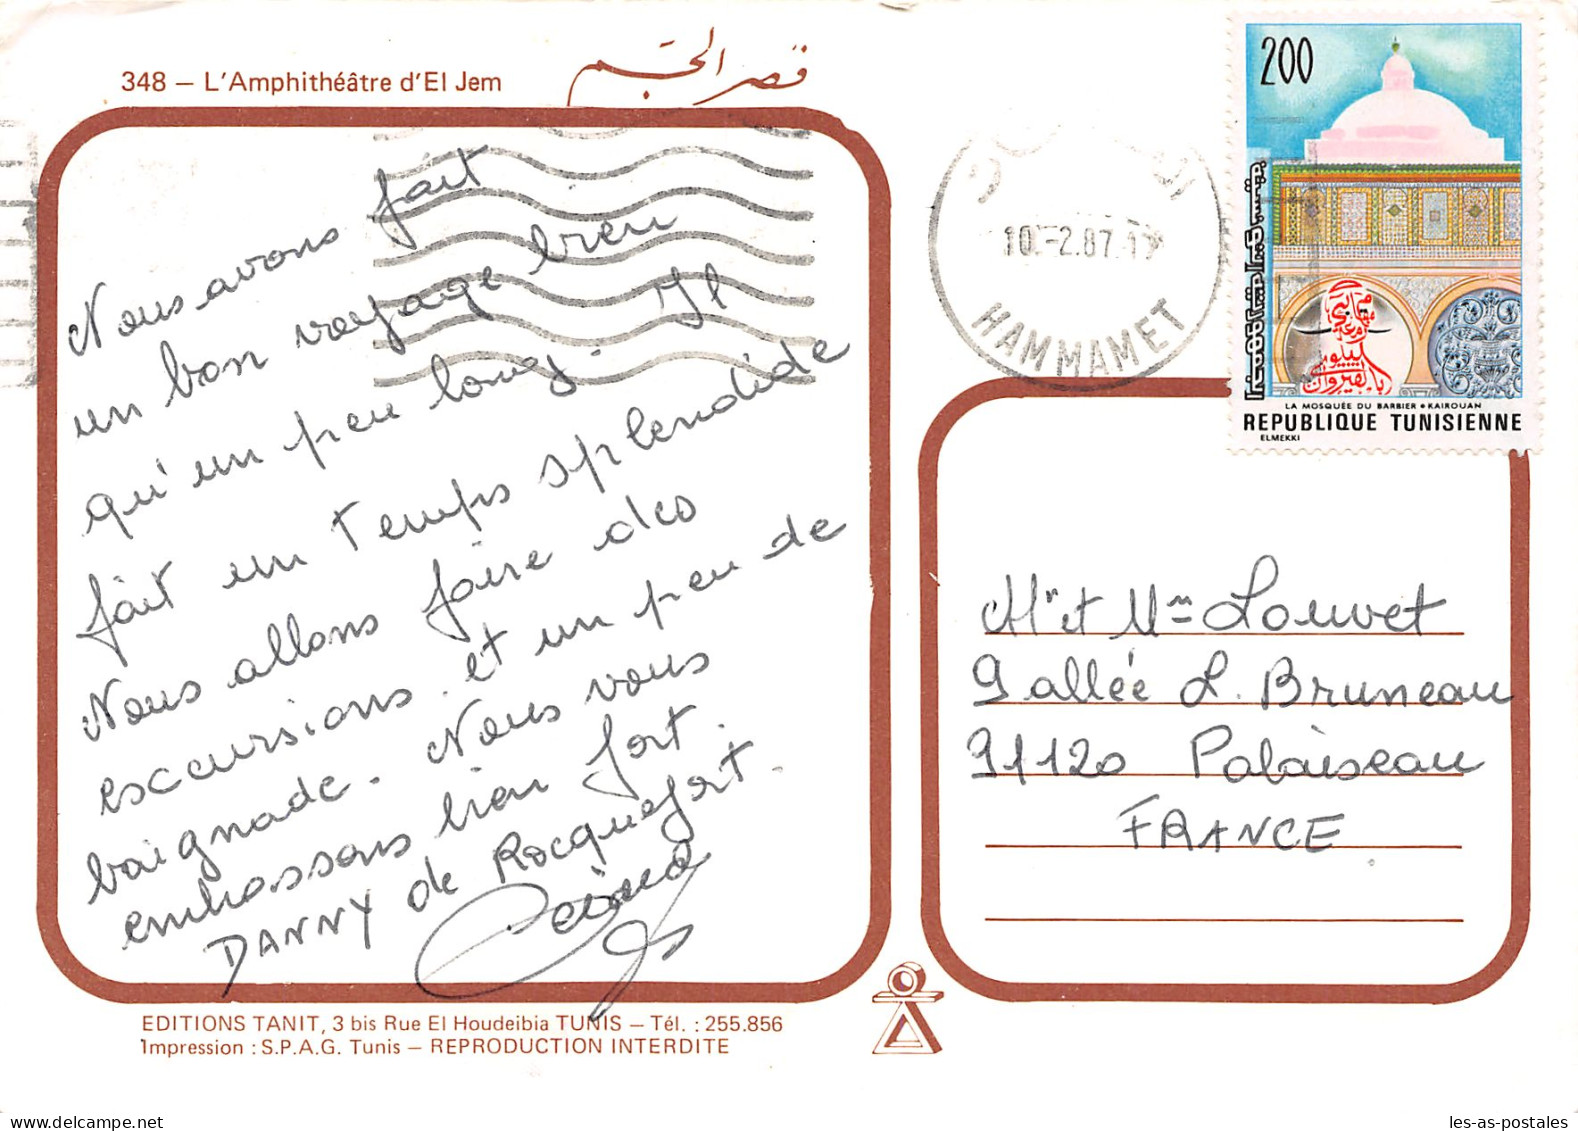 348 — L'Amphithéâtre d'El Jem
قصر الجم
Nous avons fait
un bon voyage bien
qu'un peu long. Il
fait un temps splendide
Nous allons faire des
excursions et un peu de
baignade. Nous vous
embrassons bien fort.
DANNY de Rocquefort.
EDITIONS TANIT, 3 bis Rue El Houdeibia TUNIS — Tél. : 255.856
Impression : S.P.A.G. Tunis — REPRODUCTION INTERDITE
10.-2.87.19
HAMMAMET
200
LA MOSQUÉE DU BARBIER • KAIROUAN
REPUBLIQUE TUNISIENNE
ELMEKKI
Mr et Mme Louvet
9 allée L. Bruneau
91120 Palaiseau
FRANCE
les-as-postales